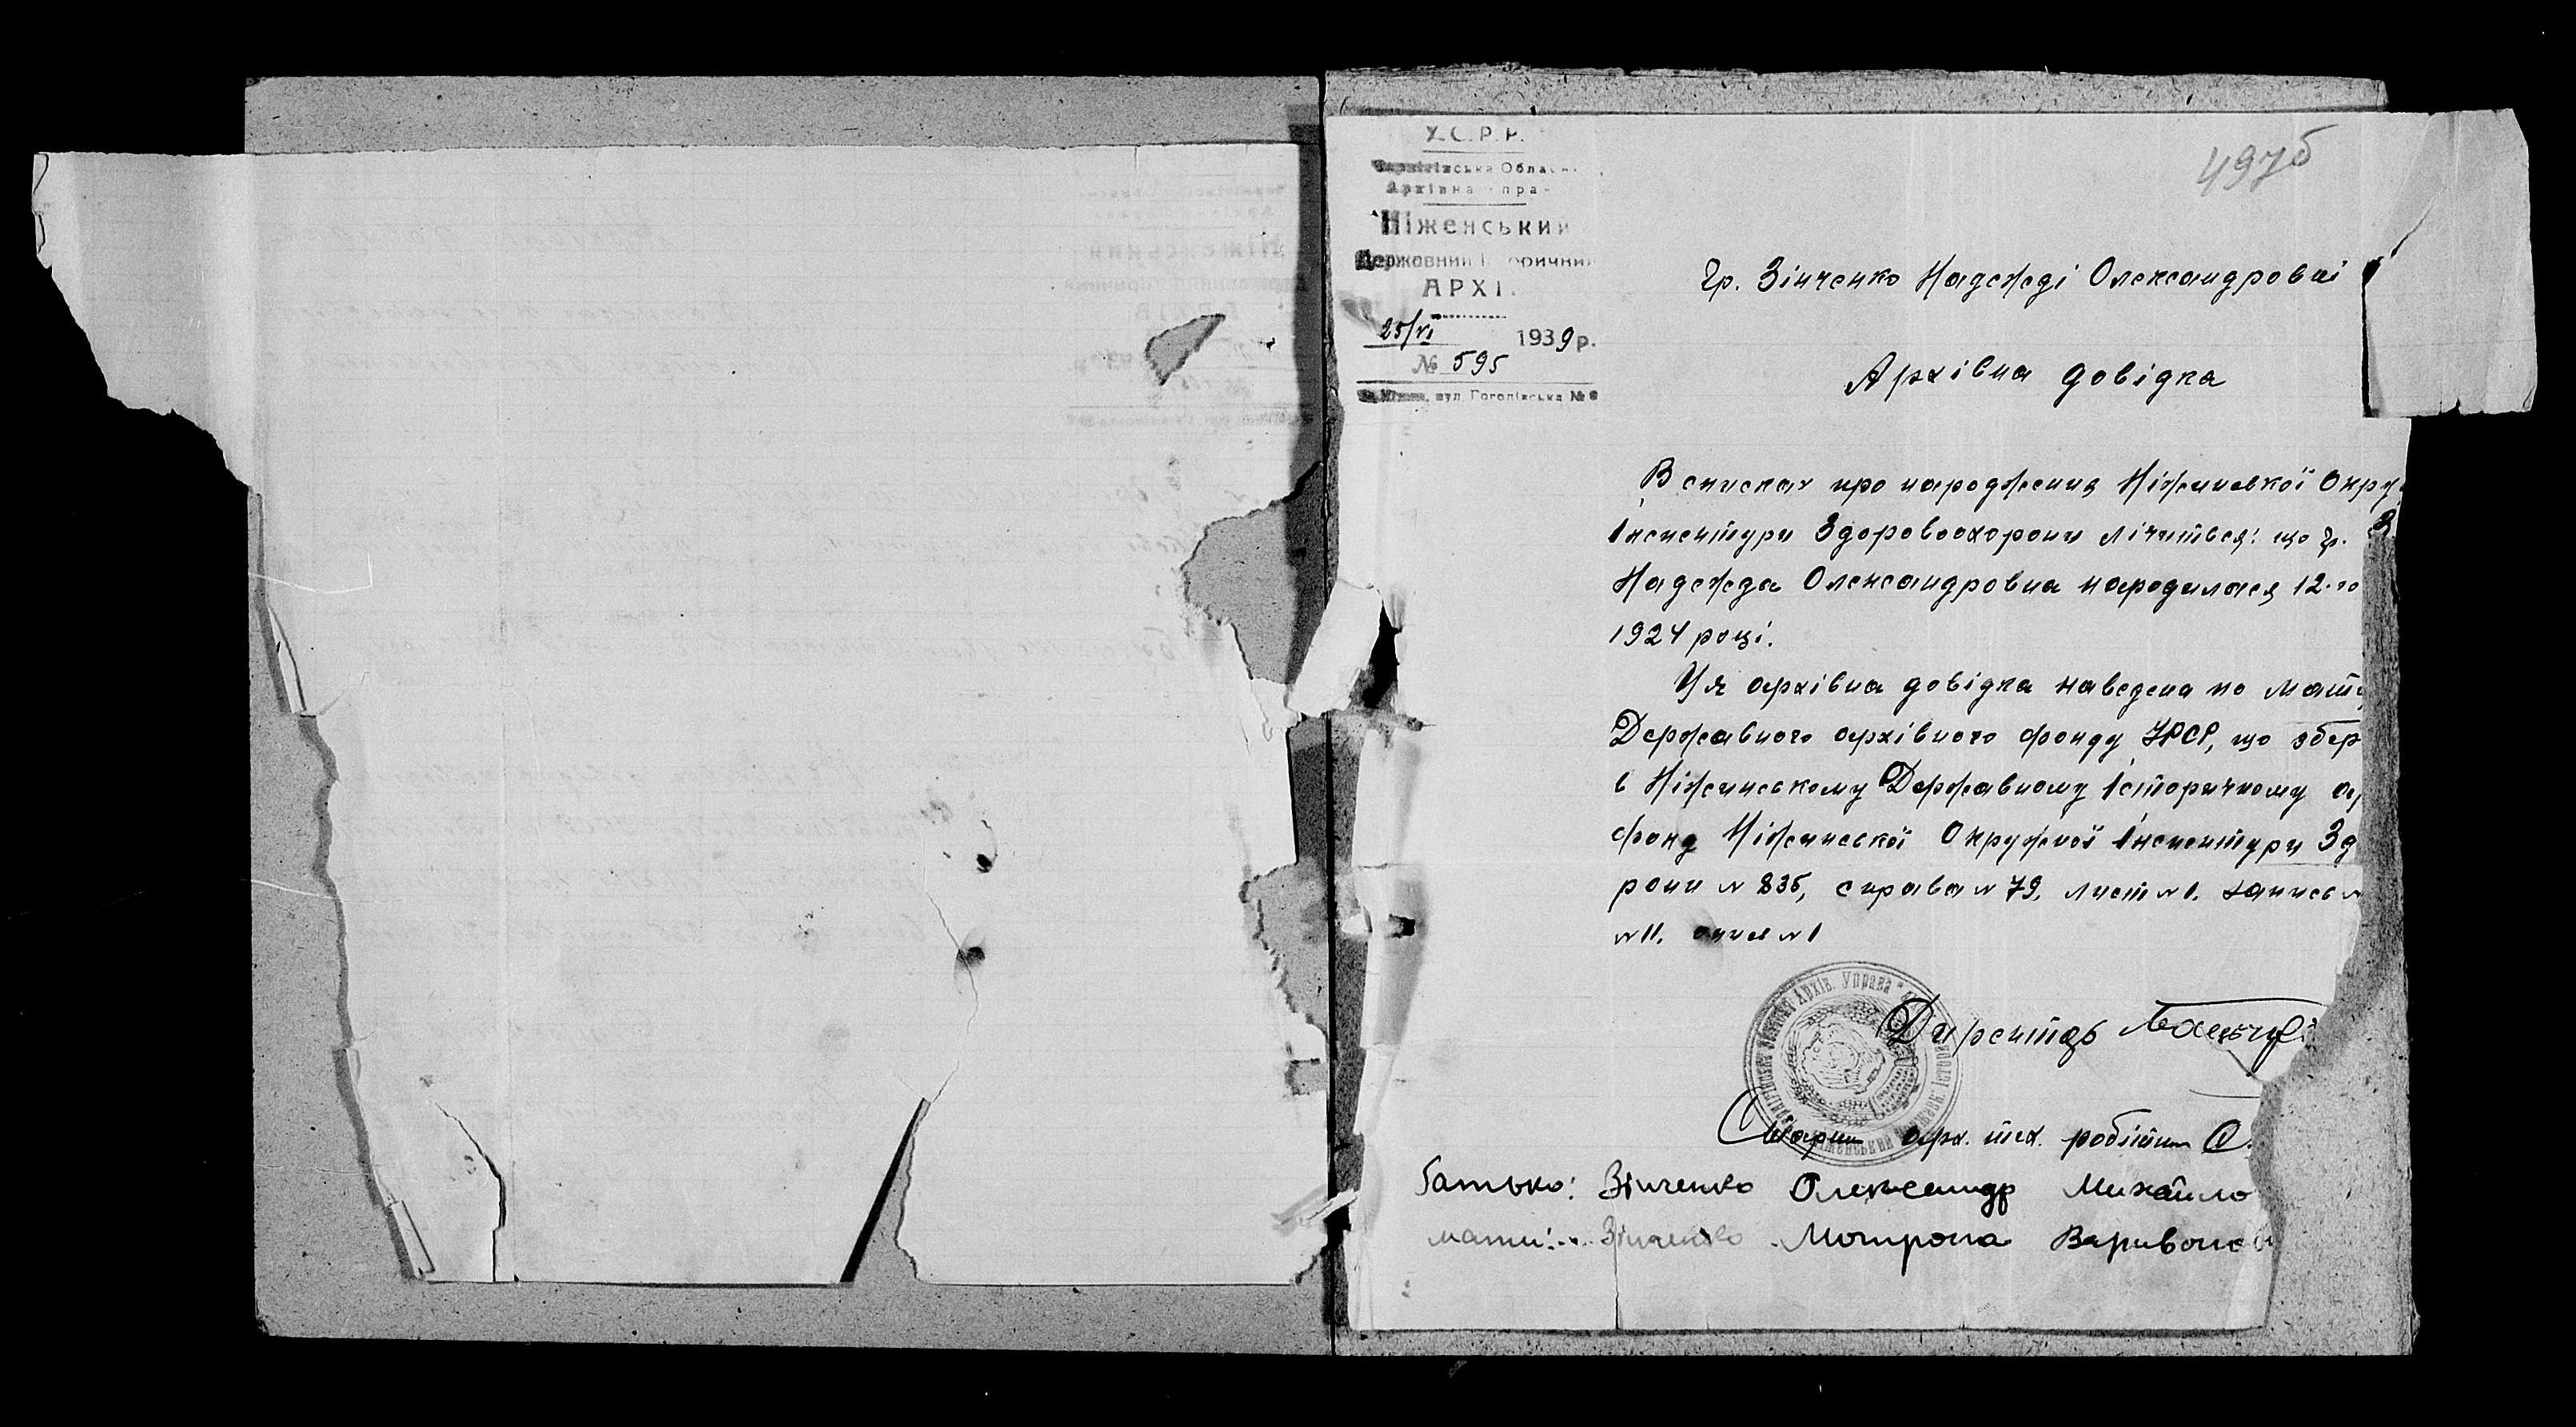 497б
У.С.Р.Р.
Чернігівська Облас
Архівна
Ніженський
Державний
АРХІ
25/VI 1939 р.
№ 595
вул. Гоголівська №
Гр. Зінченко Надежді Олександровні
Архівна довідка
В списках про народження Ніжинської Окру
Інспектури Здоровоохорони лічиться: що гр. З
Надежда Олександровна народилася 12-го
1924 році.
Ця архівна довідка наведена по мате
Державного архівного фонду УРСР, що збер
в Ніжинському Державному Історичному а
фонд Ніжинської Окружної Інспектури Зд
рони № 835, справа № 79, лист № 1. запись №
№ 11. опис № 1
Архів. Управа
Директор
Старш арх. тех. робітн О.
батько: Зінченко Олександр Михайло
мати: Зінченко Мотрона Варивонов